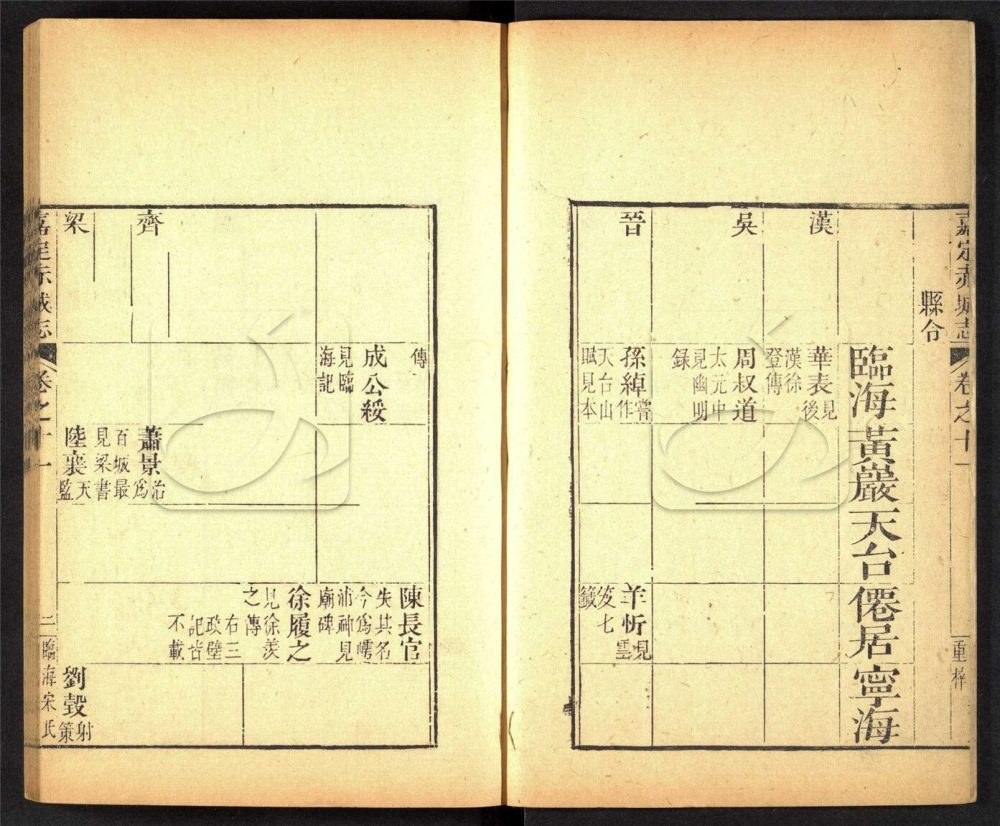 嘉定赤城志
卷之十一
重梓
縣令
臨海 黃巖 天台 僊居 寧海
漢
華表見後
漢徐
登傳
吳
周叔道
太元中
見幽明
錄
晉
孫綽嘗作
天台山
賦見本
羊忻見雲
笈七
籤
傳
陳長官
失其名
今為
浦神見
廟碑
成公綏
見臨
海記
徐履之
見徐羨
之傳
右三
政壁
記皆
不載
齊
蕭景治為
百城最
見梁書
梁
陸襄天監
劉瑴射策
嘉定赤城志
卷之十一
二
臨海宋氏